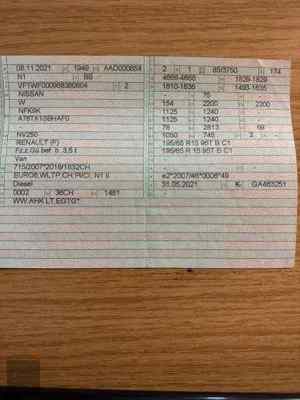 08.11.2021 1949 AAD000684
N1 BB
2
NISSAN
W
NFK9K
NV250
RENAULT (F)
Fz.z.Gü.bef. b. 3,5 t
Van
715/2007*2018/1832CH
EURO6;WLTP;CH;PI/CI; N1 II
Diesel
0002 36CH 1461
WW.AHK LT.EGTG*
2 1 85/3750 174
4666-4666 1829-1829
1810-1836
- 75 -
154 2200 2200
1125 1240 -
1125 1240 -
78 2813 69
1050 745 3 - -
195/65 R15 95T B C1
195/65 R 15 95T B C1
-
e2*2007/46*0006*49
31.05.2021 K